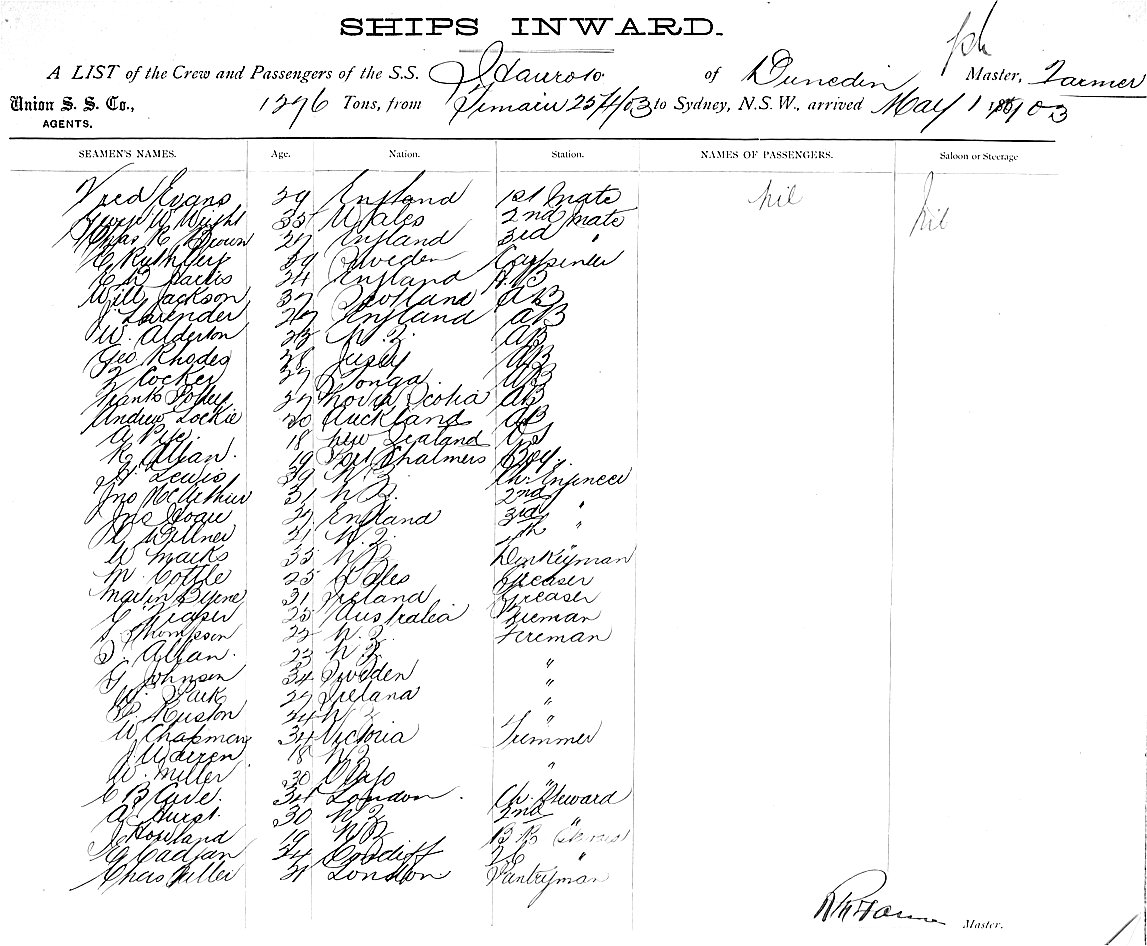 SHIPS INWARD.
A LIST of the Crew and Passengers of the S.S. Hauroto of Dunedin Master, Farmer
Union S. S. Co., AGENTS. 1276 Tons, from 25/4/03 to Sydney, N.S.W., arrived May 1 1903
SEAMEN'S NAMES. Age. Nation. Station. NAMES OF PASSENGERS. Saloon or Steerage
Fred Evans 29 England 1st Mate nil nil
W Wright 35 Wales 2nd Mate
Chas R Brown 27 England 3rd "
29 Sweden Carpenter
24 England A.B
Will Jackson 37 Scotland AB
J Lavender 27 England AB
W. Alderton 23 N.Z. AB
Geo Rhodes 28 Jersey AB
Cocker 27 Tonga AB
Frank 27 Nova Scotia AB
Andrew Lockie 20 Auckland AB
A 18 New Zealand OS
R Allan. 19 Port Chalmers Boy.
Lewis 39 N.Z. Ch. Engineer
Jno McArthur 31 N.Z. 2nd "
Jno 27 England 3rd "
Willner 21 N.Z. 4th
W Marks 35 NZ Donkeyman
M. Cottle 25 Wales Greaser
Martin Byrne 31 Ireland Greaser
Fraser 25 Australia Fireman
Thompson 22 N.Z. Fireman
Allan. 23 NZ "
Johnson 34 Sweden "
Park 27 Ireland "
Ruston 24 NZ "
W Chapman 34 Victoria Trimmer
J Warren 18 NZ "
W. Miller 30 "
C B 34 London. Ch. Steward
A Hurst. 30 NZ 2nd "
Howland 19 NZ
Cadjan 24 Cardiff "
Chas Miller 21 London Pantryman
Master.